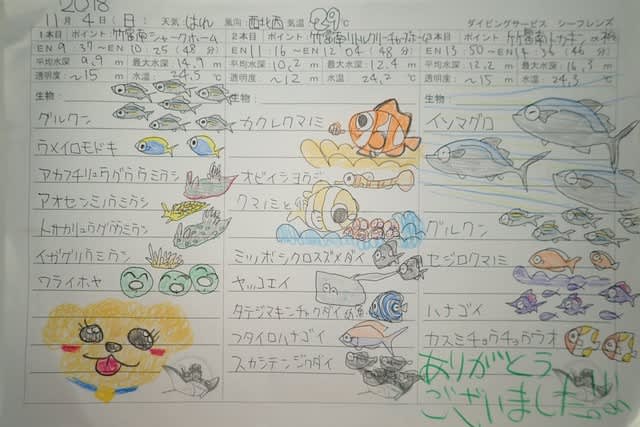 2018
11月4日(日) 天気:はれ 風向:西北西 気温 29℃ ダイビングサービス シーフレンズ
1本目 ポイント:竹富南シャークホーム
EN 9:37~10:25(48分)
平均水深 9.9 m 最大水深 14.9 m
透明度 ~15 m 水温 24.5 ℃
生物:
グルクン
ウメイロモドキ
アカフチリュウグウウミウシ
アオセンミノウミウシ
トサカリュウグウウミウシ
イガグリウミウシ
ワライボヤ
2本目 ポイント:竹富南
EN 11:16~EN 12:04(48分)
平均水深 10.2 m 最大水深 12.4 m
透明度 ~12 m 水温 24.2 ℃
生物:
カクレクマノミ
オビイシヨウジ
クマノミと卵
ミツボシクロスズメダイ
ヤッコエイ
タテジマキンチャクダイ幼魚
フタイロハナゴイ
スカシテンジクダイ
本目 ポイント:竹富南トカキン
EN 13:50~EN 14:36(46分)
平均水深 12.2 m 最大水深 16.3 m
透明度 ~15 m 水温 24.3 ℃
生物:
イソマグロ
グルクン
セジロクマノミ
ハナゴイ
カスミチョウチョウウオ
ありがとう
ございました!!!